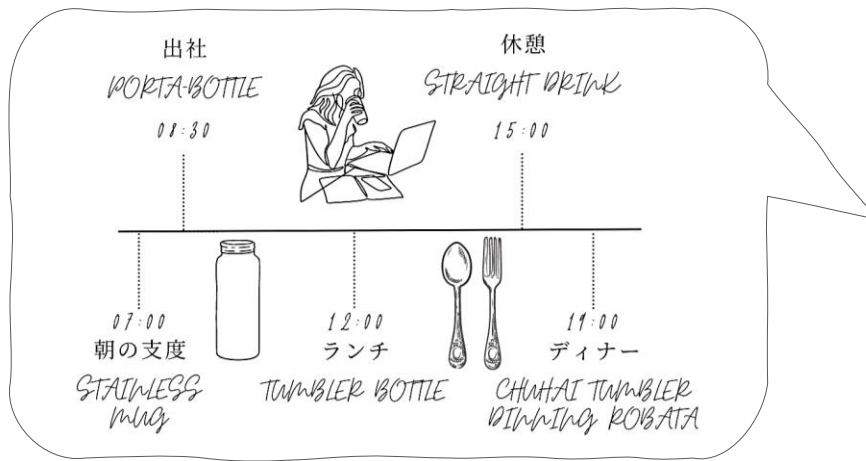 出社
PORTA-BOTTLE
08:30
休憩
STRAIGHT DRINK
15:00
07:00
朝の支度
STAINLESS
MUG
12:00
ランチ
TUMBLER BOTTLE
19:00
ディナー
CHUHAI TUMBLER
DINNING ROBATA